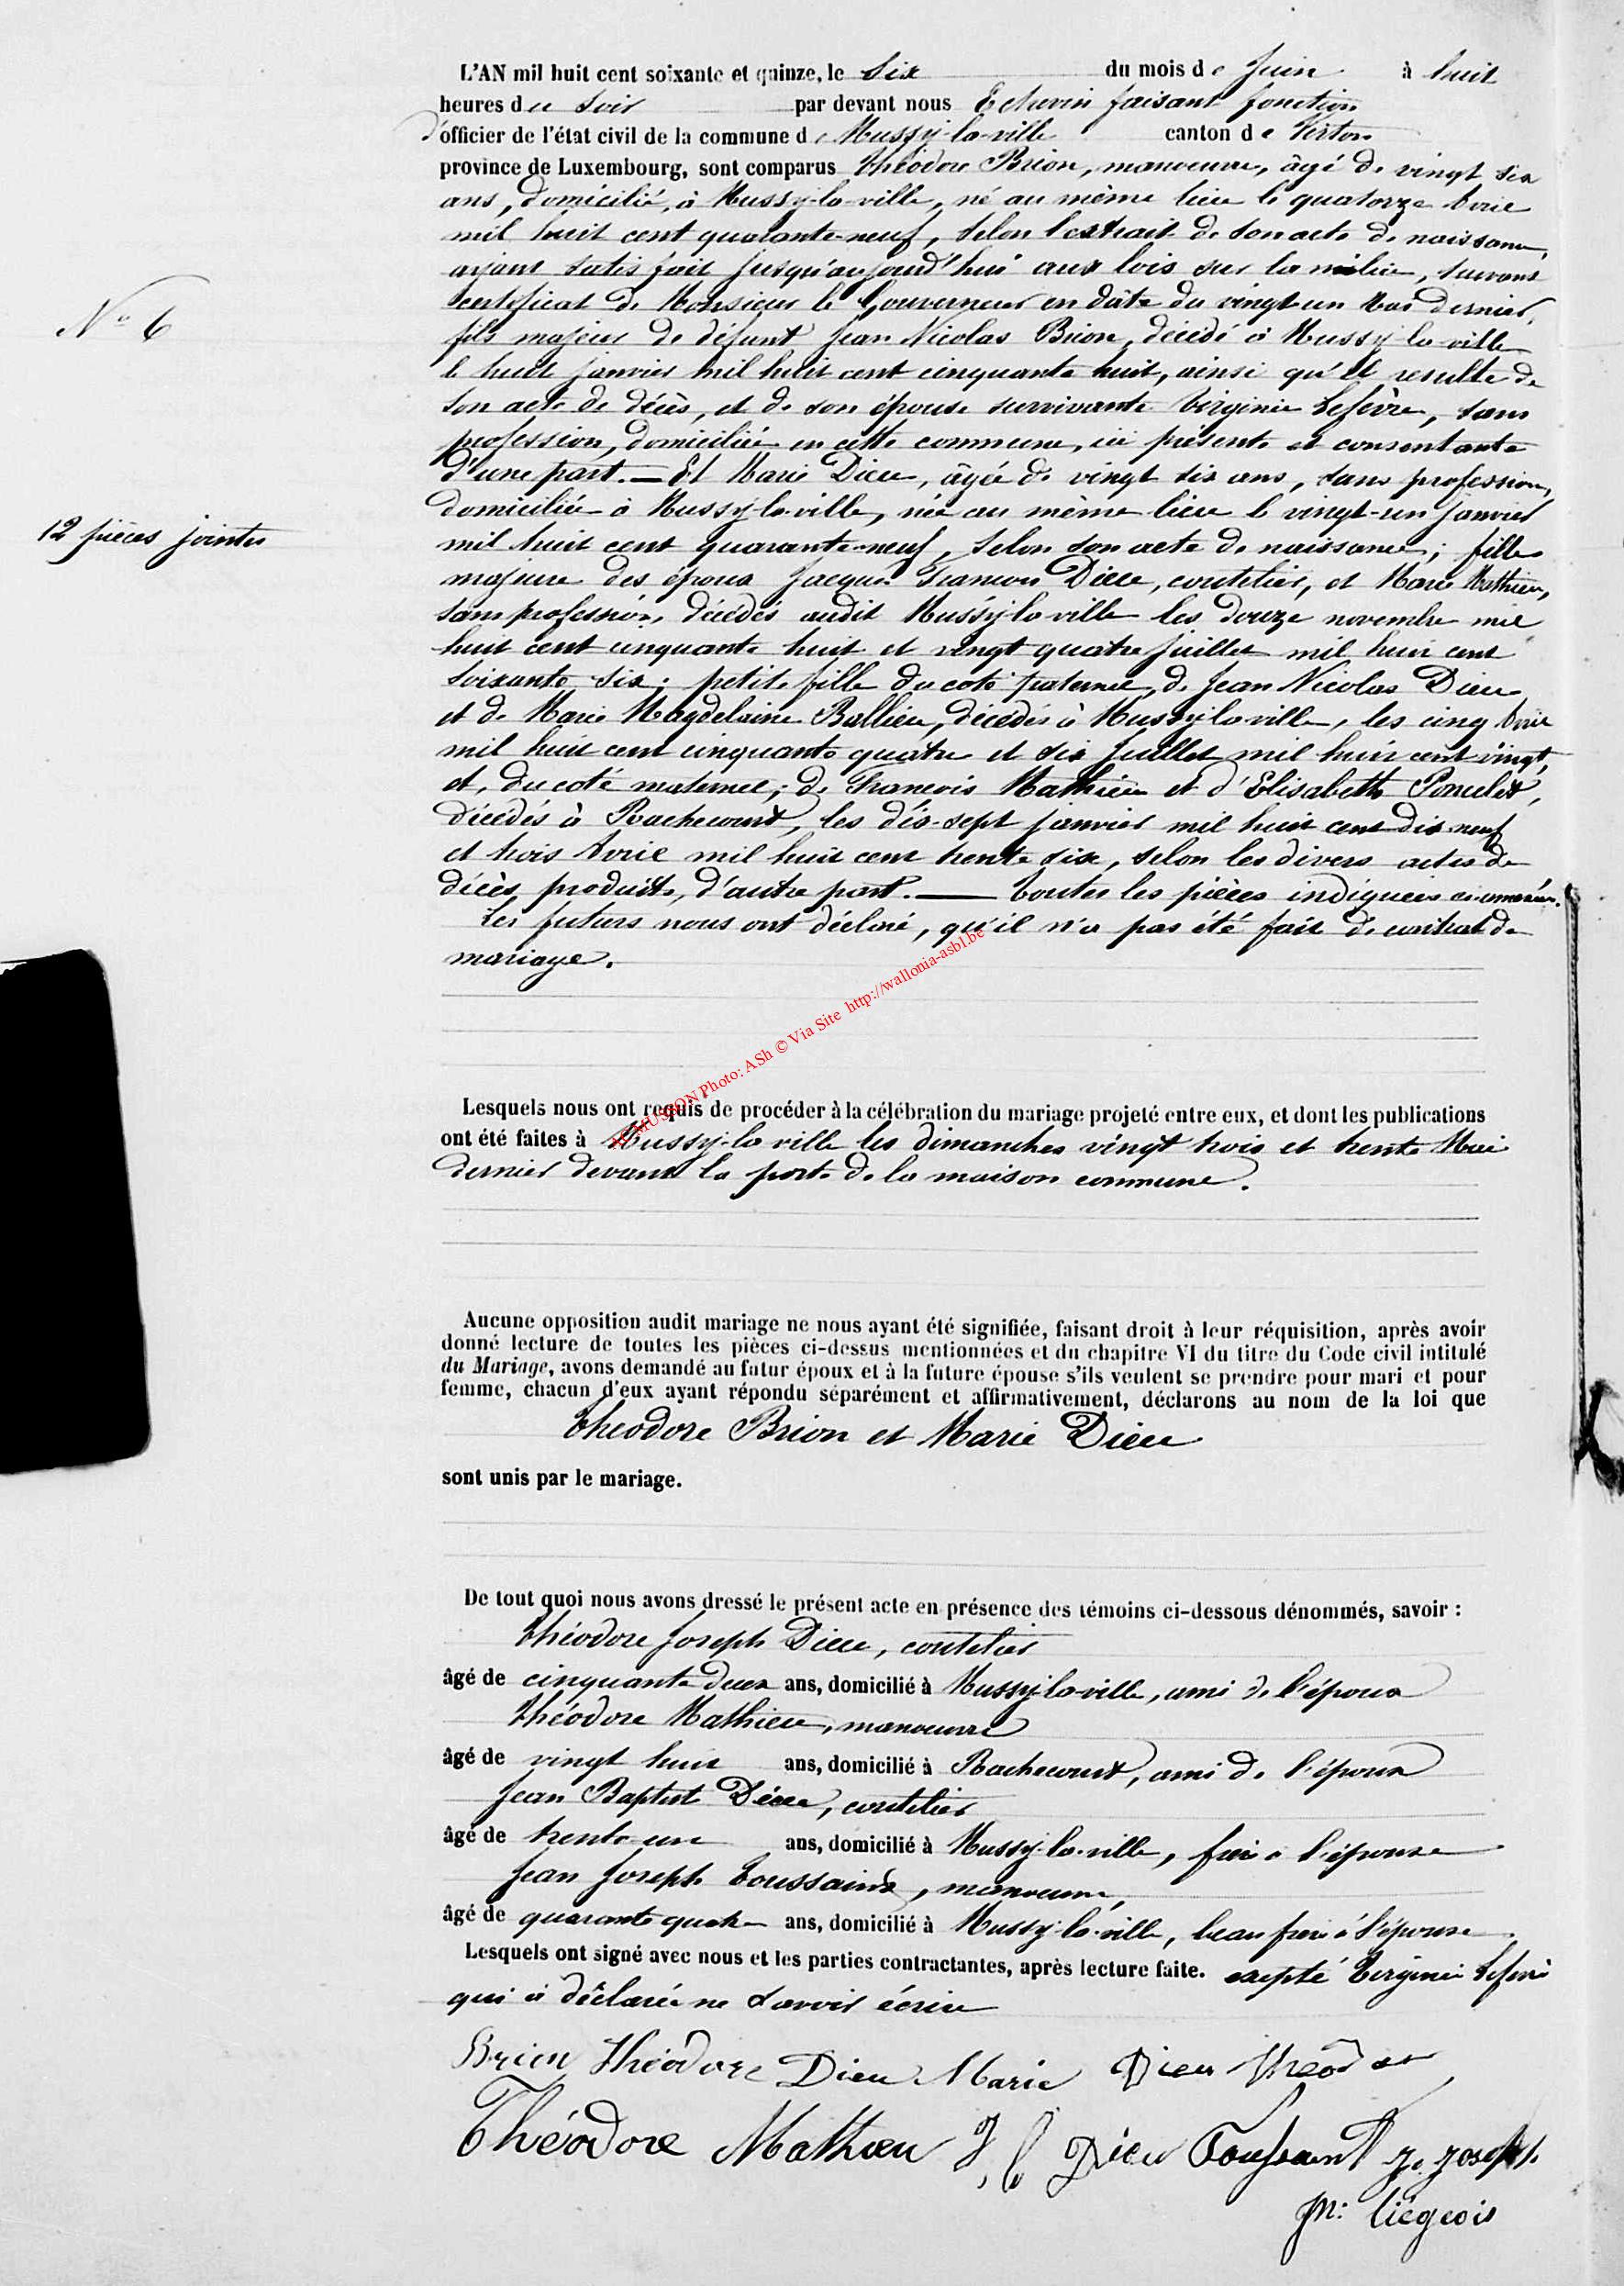 L'AN mil huit cent soixante et quinze, le Six du mois de Juin à huit
heures du Soir par devant nous Echevin faisant fonction
d'officier de l'état civil de la commune de Mussy-la-ville canton de Virton
province de Luxembourg, sont comparus Théodore Brion, manoeuvre, âgé de vingt six
ans, domicilié, à Mussy-la-ville, né au même lieu le quatorze Avril
mil huit cent quarante-neuf, selon l'extrait de son acte de naissance,
ayant satisfait jusqu'aujourd'hui aux lois sur la milice, suivant
certificat de Monsieur le Gouverneur en date du vingt-un Mai dernier,
N° 6
fils majeur de défunt Jean Nicolas Brion, décédé à Mussy-la-ville
le huit janvier mil huit cent cinquante huit, ainsi qu'il resulte de
son acte de décès, et de son épouse survivante Virginie Lefèvre, sans
profession, domiciliée en cette commune, ici présente et consentante
d'une part. — Et Marie Dieu, âgée de vingt six ans, sans profession,
domiciliée à Mussy-la-ville, née au même lieu le vingt-un janvier
12 pièces jointes
mil huit cent quarante-neuf, selon son acte de naissance; fille
majeure des époux Jacques François Dieu, coutelier, et Marie Mathieu,
sans profession, décédés audit Mussy-la-ville les douze novembre mil
huit cent cinquante huit et vingt quatre juillet mil huit cent
soixante six; petite fille du coté paternel, de Jean Nicolas Dieu
et de Marie Magdelaine Ballieu, décédés à Mussy-la-ville, les cinq Avril
mil huit cent cinquante quatre et six Juillet mil huit cent vingt,
et, du coté maternel; de François Mathieu et d'Elisabeth Poncelet,
décédés à Rachecourt, les dix-sept janvier mil huit cent dix neuf
et trois Avril mil huit cent trente six, selon les divers actes de
décès produits, d'autre part. — Toutes les pièces indiquées ci-annexées.
Les futurs nous ont déclaré, qu'il n'a pas été fait de contrat de
mariage.
MUSSON Photo: ASh © Via Site http://wallonia-asbl.be
Lesquels nous ont requis de procéder à la célébration du mariage projeté entre eux, et dont les publications
ont été faites à Mussy-la ville les dimanches vingt trois et trente Mai
dernier devant la porte de la maison commune.
Aucune opposition audit mariage ne nous ayant été signifiée, faisant droit à leur réquisition, après avoir
donné lecture de toutes les pièces ci-dessus mentionnées et du chapitre VI du titre du Code civil intitulé
du Mariage, avons demandé au futur époux et à la future épouse s'ils veulent se prendre pour mari et pour
femme, chacun d'eux ayant répondu séparément et affirmativement, déclarons au nom de la loi que
Théodore Brion et Marie Dieu
sont unis par le mariage.
De tout quoi nous avons dressé le présent acte en présence des témoins ci-dessous dénommés, savoir :
Théodore Joseph Dieu, coutelier
âgé de cinquante deux ans, domicilié à Mussy-la-ville, ami de l'époux
Théodore Mathieu, manoeuvre
âgé de vingt huit ans, domicilié à Rachecourt, ami de l'époux
Jean Baptiste Dieu, coutelier
âgé de trente-un ans, domicilié à Mussy-la-ville, frère à l'épouse
Jean Joseph Toussaint, manoeuvre,
âgé de quarante quatre ans, domicilié à Mussy-la-ville, beau frère à l'épouse
Lesquels ont signé avec nous et les parties contractantes, après lecture faite. excepté Virginie Lefèvre
qui a déclarée ne savoir écrire
Brion Théodore Dieu Marie Dieu Théodore
Théodore Mathieu J. B Dieu Toussaint J. Joseph
Jn: Liégeois